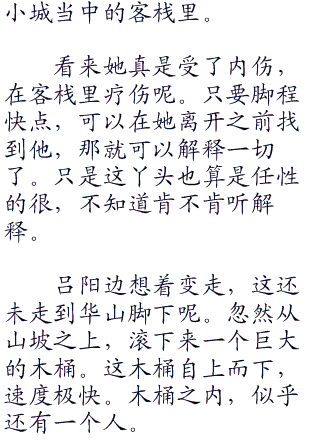 小城当中的客栈里。
看来她真是受了内伤，
在客栈里疗伤呢。只要脚程
快点，可以在她离开之前找
到他，那就可以解释一切
了。只是这丫头也算是任性
的很，不知道肯不肯听解
释。
吕阳边想着变走，这还
未走到华山脚下呢。忽然从
山坡之上，滚下来一个巨大
的木桶。这木桶自上而下，
速度极快。木桶之内，似乎
还有一个人。